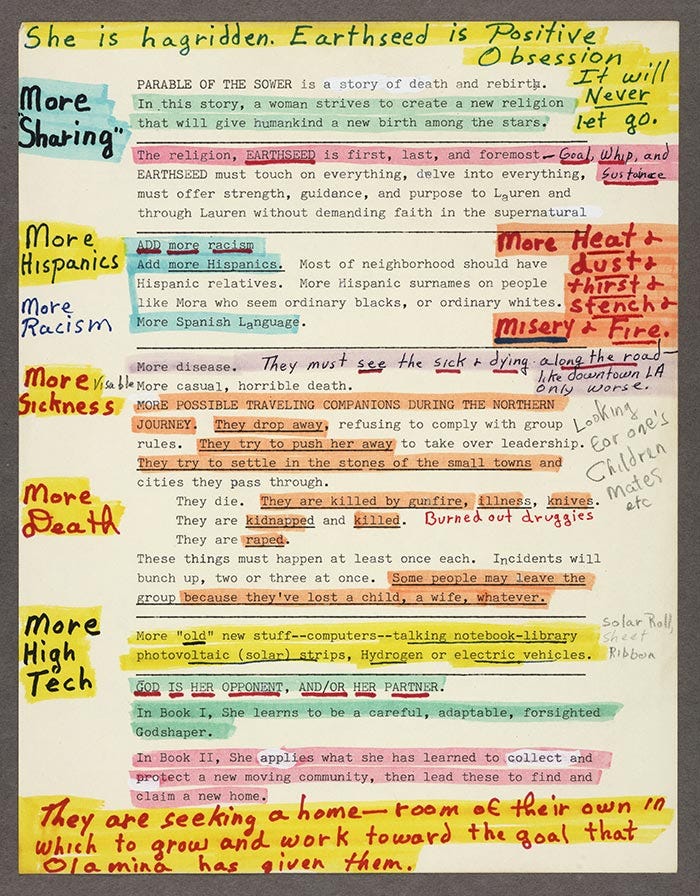 She is hagridden. Earthseed is Positive
Obsession
It will
Never
let go.
More
"Sharing"
PARABLE OF THE SOWER is a story of death and rebirth.
In this story, a woman strives to create a new religion
that will give humankind a new birth among the stars.
The religion, EARTHSEED is first, last, and foremost — Goal, Whip, and
Sustaince
EARTHSEED must touch on everything, delve into everything,
must offer strength, guidance, and purpose to Lauren and
through Lauren without demanding faith in the supernatural
More
Hispanics
More
Racism
ADD more racism
Add more Hispanics. Most of neighborhood should have
Hispanic relatives. More Hispanic surnames on people
like Mora who seem ordinary blacks, or ordinary whites.
More Spanish Language.
More Heat &
dust &
thirst &
stench &
Misery & Fire.
More disease. They must see the sick & dying along the road—
like downtown LA
only worse.
More Visable
Sickness
More casual, horrible death.
MORE POSSIBLE TRAVELING COMPANIONS DURING THE NORTHERN
JOURNEY. They drop away, refusing to comply with group
rules. They try to push her away to take over leadership.
They try to settle in the stones of the small towns and
cities they pass through.
Looking
for one's
Children
mates
etc
More
Death
They die. They are killed by gunfire, illness, knives.
They are kidnapped and killed. Burned out druggies
They are raped.
These things must happen at least once each. Incidents will
bunch up, two or three at once. Some people may leave the
group because they've lost a child, a wife, whatever.
More
High
Tech
More "old" new stuff--computers--talking notebook-library
photovoltaic (solar) strips, Hydrogen or electric vehicles.
solar Roll,
sheet
Ribbon
GOD IS HER OPPONENT, AND/OR HER PARTNER.
In Book I, She learns to be a careful, adaptable, forsighted
Godshaper.
In Book II, She applies what she has learned to collect and
protect a new moving community, then lead these to find and
claim a new home.
They are seeking a home— room of their own in
which to grow and work toward the goal that
Olamina has given them.